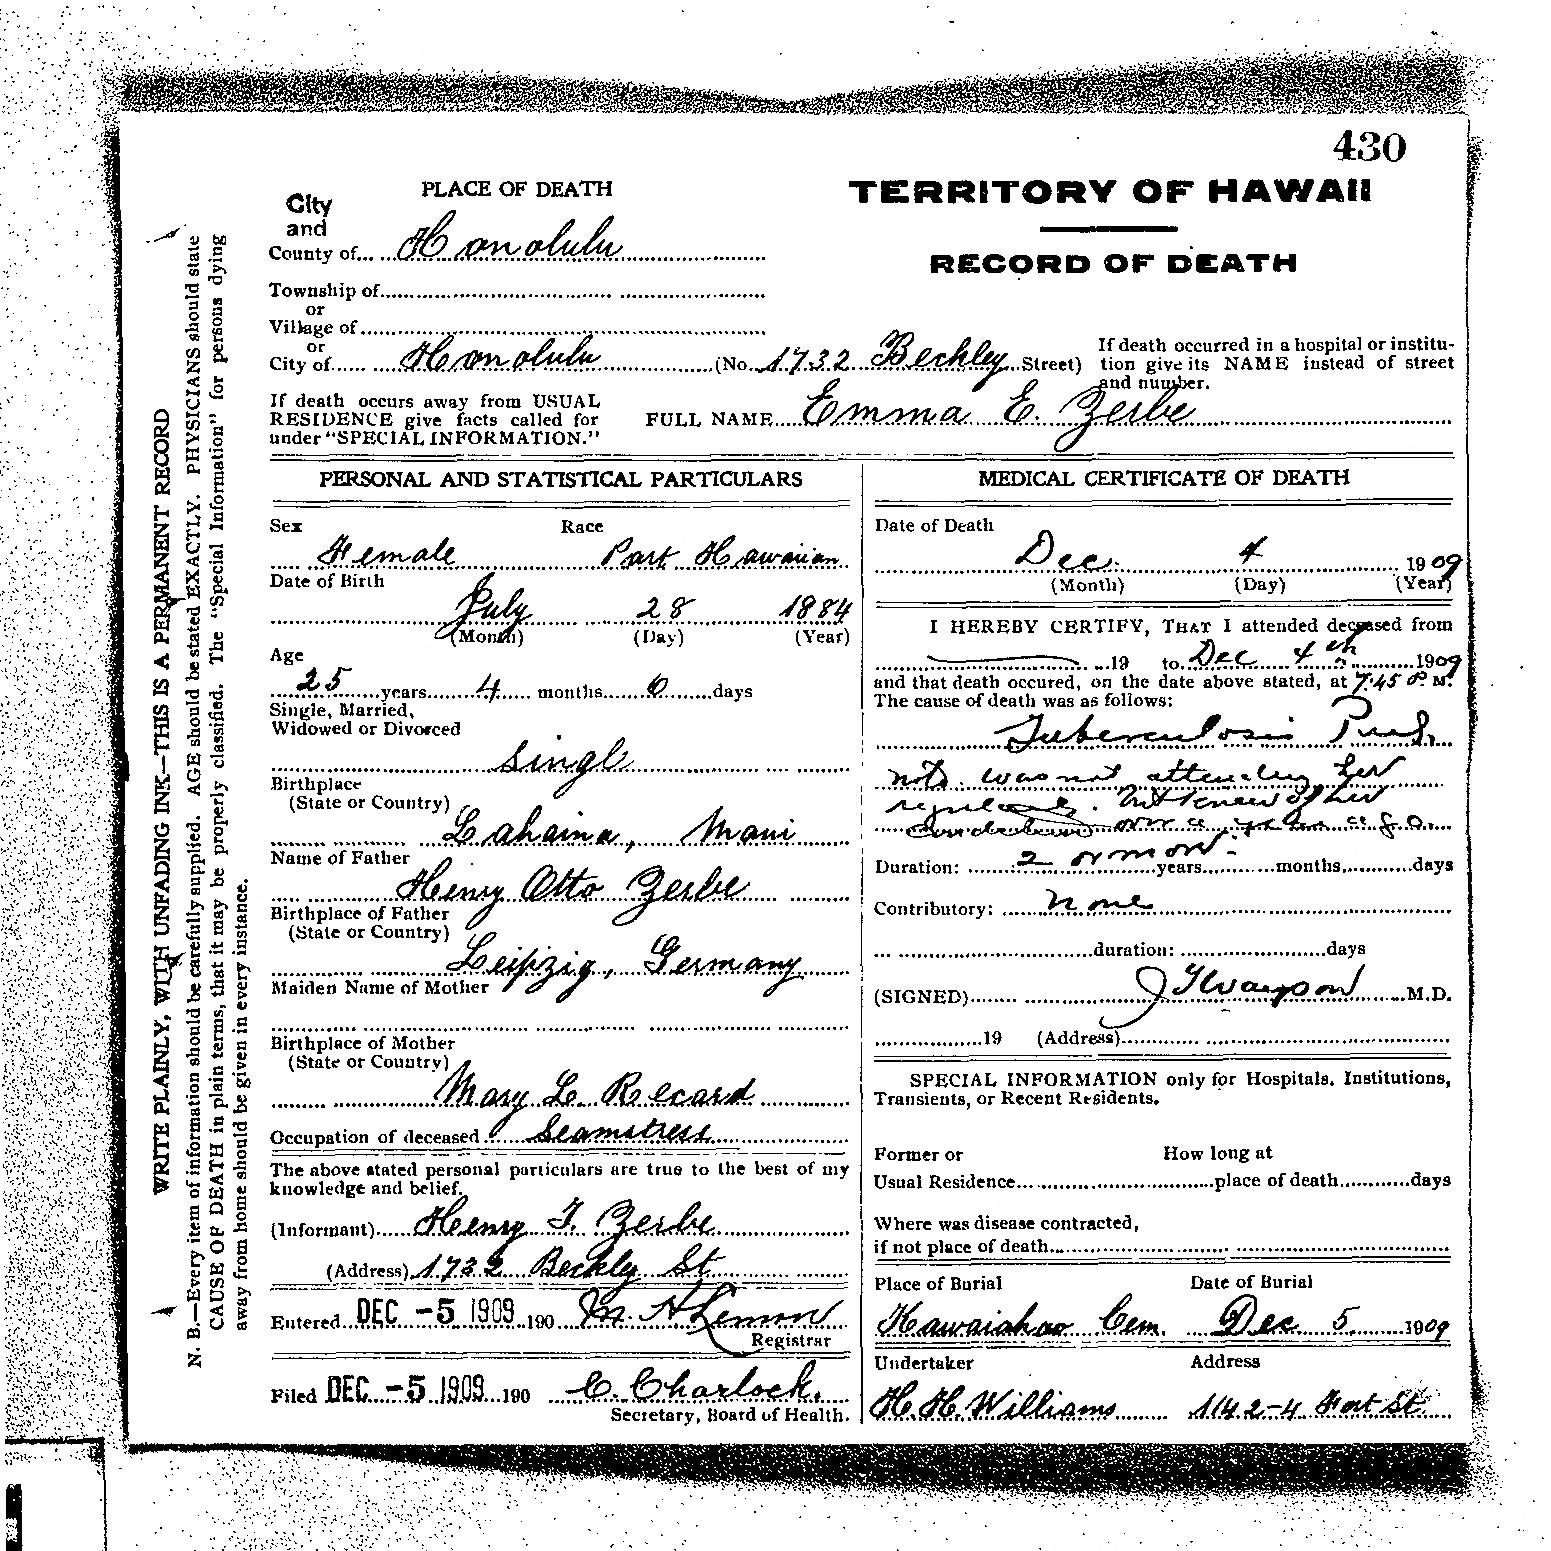 430
PLACE OF DEATH
TERRITORY OF HAWAII
RECORD OF DEATH
City
and
County of Honolulu
Township of
or
Village of
or
City of Honolulu (No. 1732 Beckley Street)
If death occurred in a hospital or institu-
tion give its NAME instead of street
and number.
If death occurs away from USUAL
RESIDENCE give facts called for
under "SPECIAL INFORMATION."
FULL NAME Emma E. Zerbe
WRITE PLAINLY, WITH UNFADING INK—THIS IS A PERMANENT RECORD
N. B.—Every item of information should be carefully supplied. AGE should be stated EXACTLY. PHYSICIANS should state
CAUSE OF DEATH in plain terms, that it may be properly classified. The "Special Information" for persons dying
away from home should be given in every instance.
PERSONAL AND STATISTICAL PARTICULARS
Sex Race
Female Part Hawaiian
Date of Birth
July 28 1884
(Month) (Day) (Year)
Age
25 years 4 months 6 days
Single, Married,
Widowed or Divorced
Singl
Birthplace
(State or Country)
Lahaina, Maui
Name of Father
Henry Otto Zerbe
Birthplace of Father
(State or Country)
Leipzig, Germany
Maiden Name of Mother
Birthplace of Mother
(State or Country)
Mary L. Recard
Occupation of deceased Seamstress
The above stated personal particulars are true to the best of my
knowledge and belief.
(Informant) Henry J. Zerbe
(Address) 1732 Beckly St
Entered DEC -5 1909 190 M. A Lemon
Registrar
Filed DEC -5 1909 190 C. Charlock.
Secretary, Board of Health.
MEDICAL CERTIFICATE OF DEATH
Date of Death
Dec. 4 1909
(Month) (Day) (Year)
I HEREBY CERTIFY, THAT I attended deceased from
19 to Dec 4th 1909
and that death occured, on the date above stated, at 7:45 P.M.
The cause of death was as follows:
Tuberculosis Pul.
note. was not attending her
regularly. but knew of her
condition over a year ago.
Duration: 2 or more years months, days
Contributory: none
duration: days
(SIGNED) M.D.
19 (Address)
SPECIAL INFORMATION only for Hospitals, Institutions,
Transients, or Recent Residents.
Former or How long at
Usual Residence place of death days
Where was disease contracted,
if not place of death
Place of Burial Date of Burial
Kawaiahao Cem. Dec 5 1909
Undertaker Address
H. H. Williams 1142-4 Fort St.